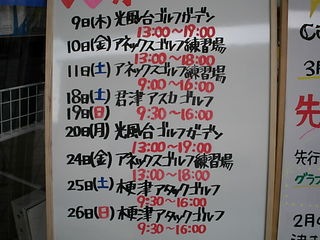 9日(木)光風台ゴルフガーデン
13:00〜19:00
10日(金)アネックスゴルフ練習場
13:00〜18:00
11日(土)アネックスゴルフ練習場
9:00〜16:00
18日(土)君津アスカゴルフ
19日(日) 9:30〜16:00
20日(月)光風台ゴルフガーデン
13:00〜19:00
24日(金)アネックスゴルフ練習場
13:00〜18:00
25日(土)木更津アタックゴルフ
9:30〜16:00
26日(日)木更津アタックゴルフ
9:30〜16:00
3月
先
先行
グラフ
2月